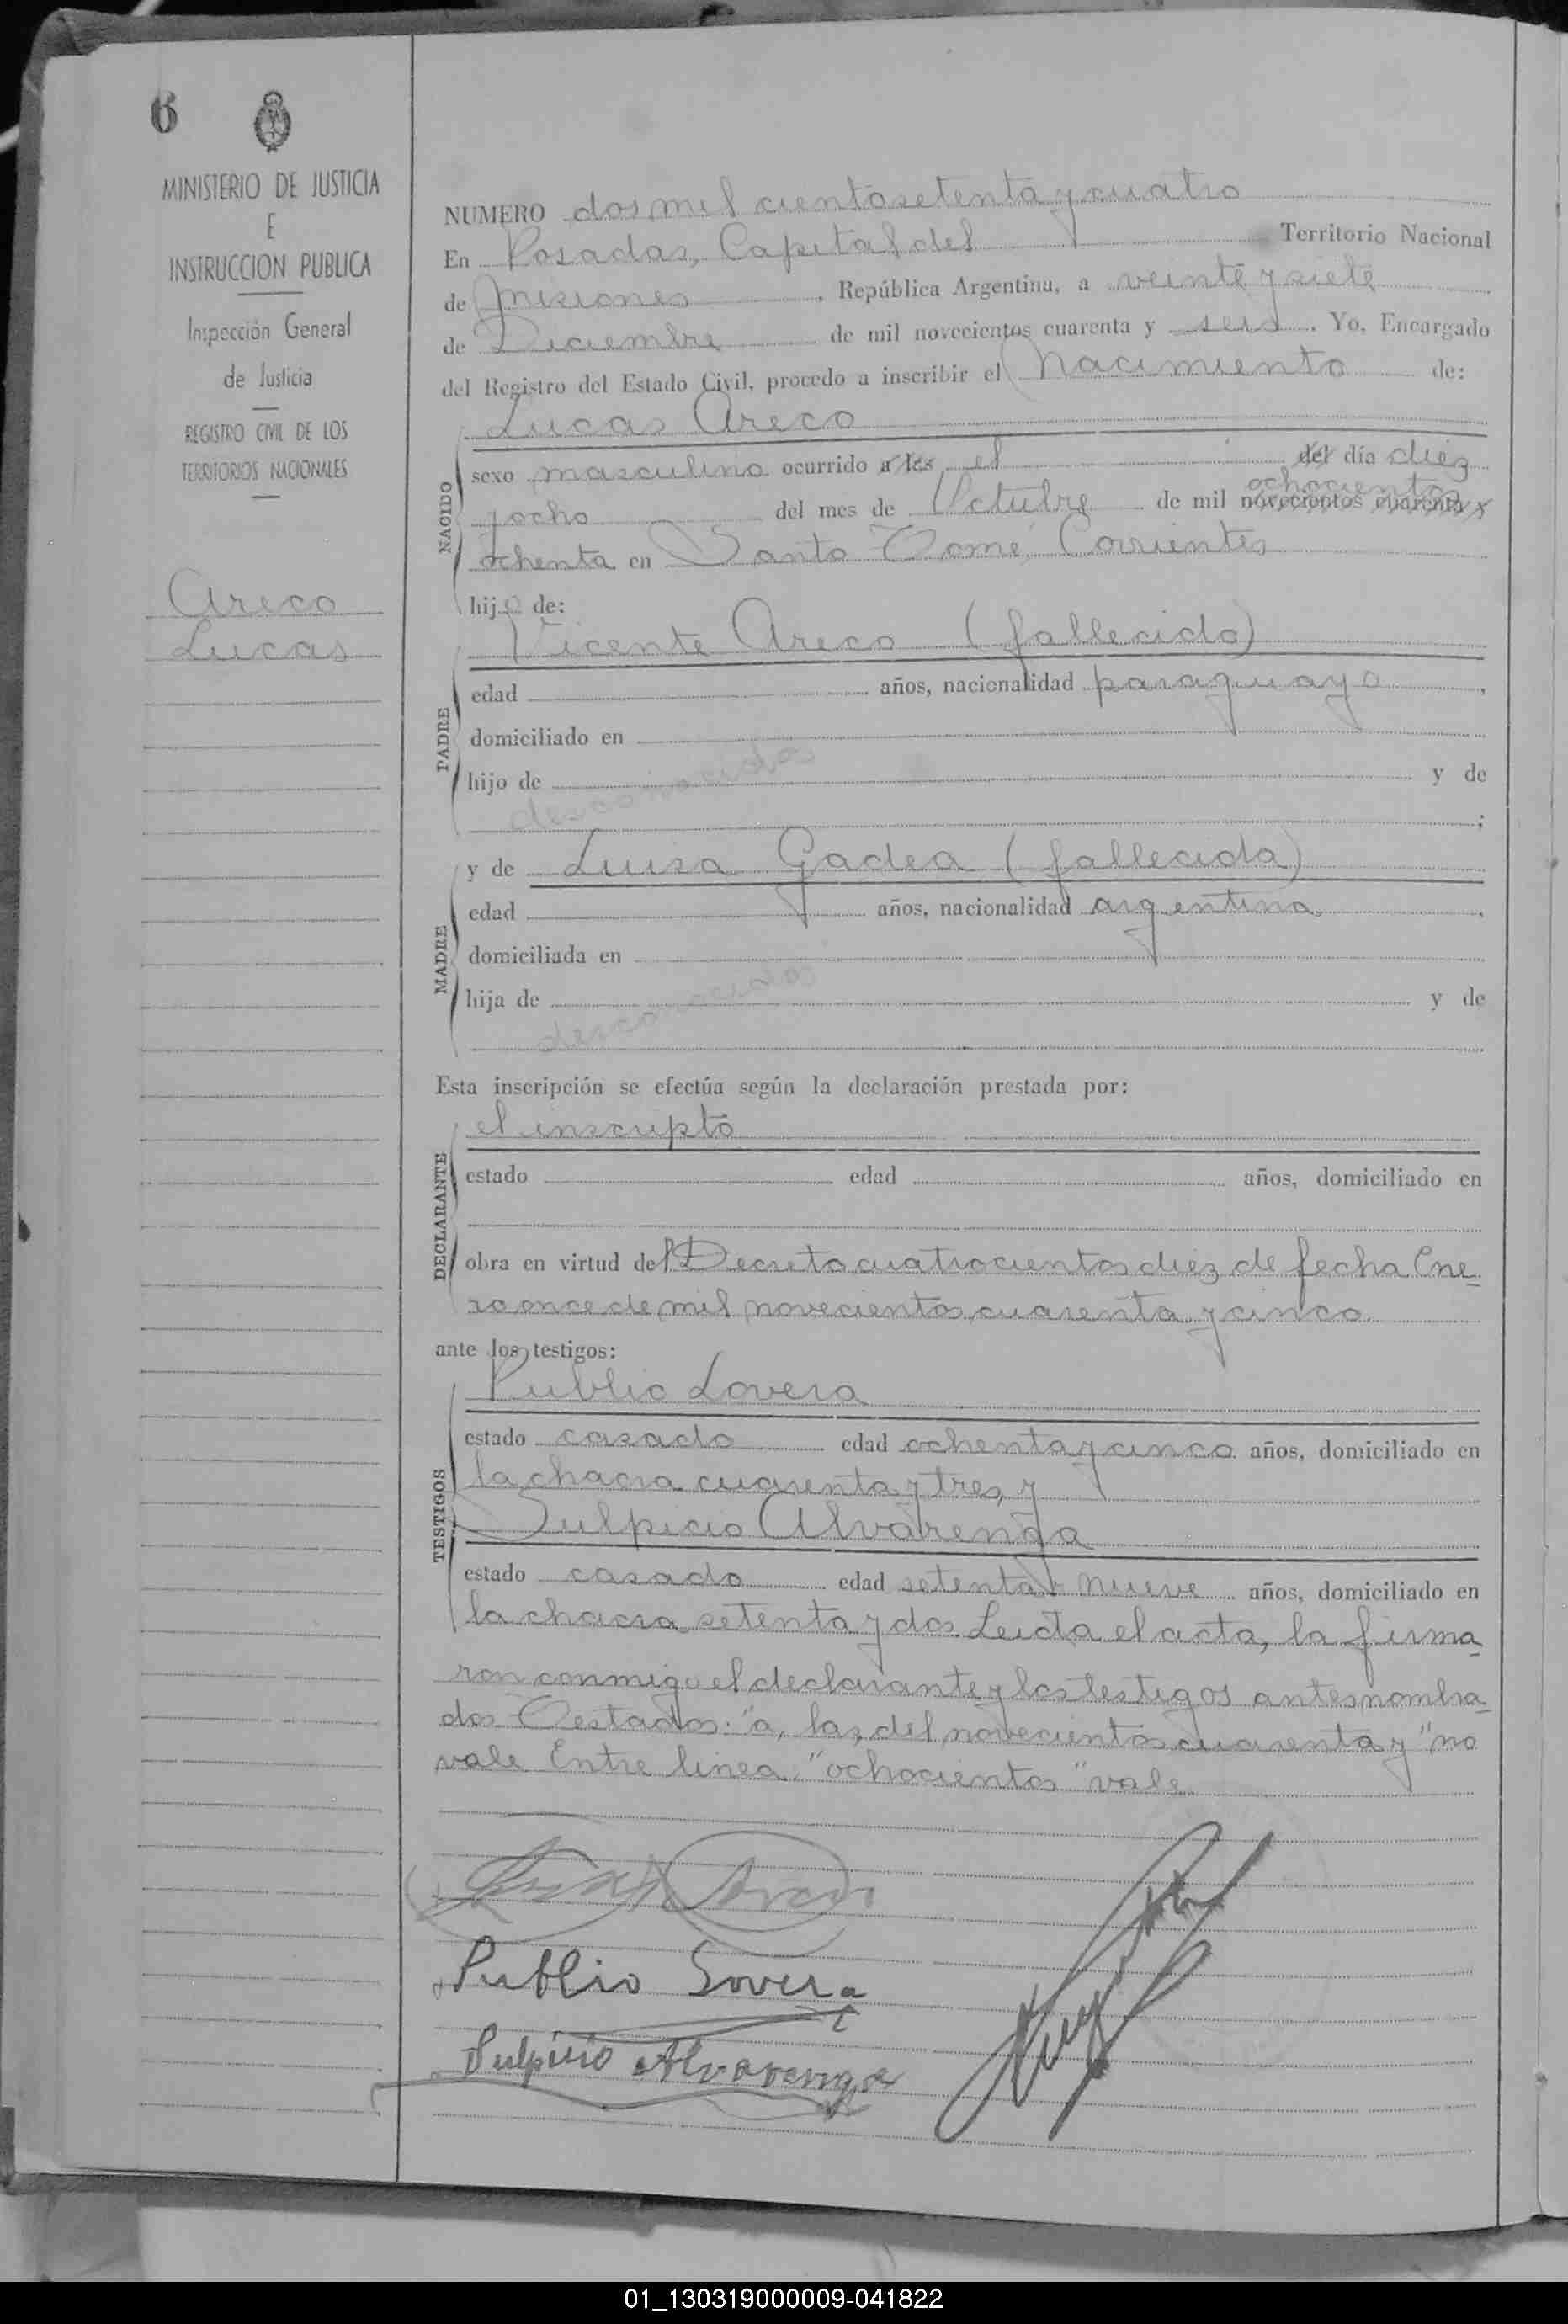 6
MINISTERIO DE JUSTICIA
E
INSTRUCCION PUBLICA
Inspección General
de Justicia
REGISTRO CIVIL DE LOS
TERRITORIOS NACIONALES
Areco
Lucas
NUMERO dos mil ciento setenta y cuatro
En Posadas, Capital del Territorio Nacional
de Misiones, República Argentina, a veinte y siete
de Diciembre de mil novecientos cuarenta y seis. Yo, Encargado
del Registro del Estado Civil, procedo a inscribir el Nacimiento de:
Lucas Areco
NACIDO
sexo masculino ocurrido a las el del día diez
ochocientos
y ocho del mes de Octubre de mil novecientos cuarenta y
ochenta en Santo Tomé Corrientes
hijo de:
Vicente Areco (fallecido)
PADRE
edad años, nacionalidad paraguayo,
domiciliado en
hijo de desconocidos y de
;
y de Luisa Gadea (fallecida)
MADRE
edad años, nacionalidad argentina,
domiciliada en
hija de desconocidos y de
Esta inscripción se efectúa según la declaración prestada por:
el inscripto
DECLARANTE
estado edad años, domiciliado en
obra en virtud del Decreto cuatrocientos diez de fecha Ene-
ro once de mil novecientos cuarenta y cinco.
ante los testigos:
Publio Lovera
TESTIGOS
estado casado edad ochenta y cinco años, domiciliado en
la chacra cuarenta y tres, y
Sulpicio Alvarenga
estado casado edad setenta y nueve años, domiciliado en
la chacra setenta y dos. Leida el acta, la firma-
ron conmigo el declarante y los testigos antes nombra-
dos Testados: "a, las, del novecientos cuarenta y" no
vale Entre linea: "ochocientos" vale.
Lucas Areco
Publio Lovera
Sulpicio Alvarenga
01_130319000009-041822